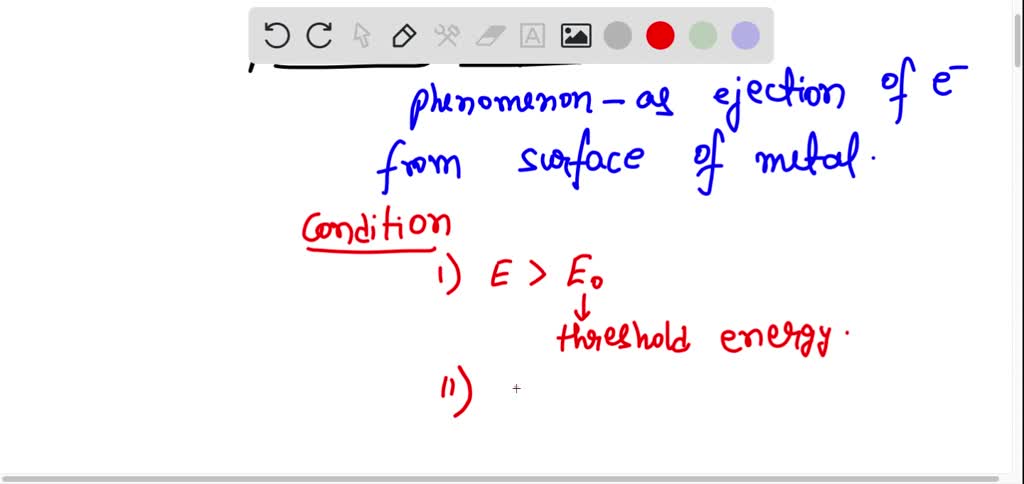 phenomenon - as ejection of e⁻
from surface of metal.
Condition
i) E > E₀
↓
threshold energy.
ii)